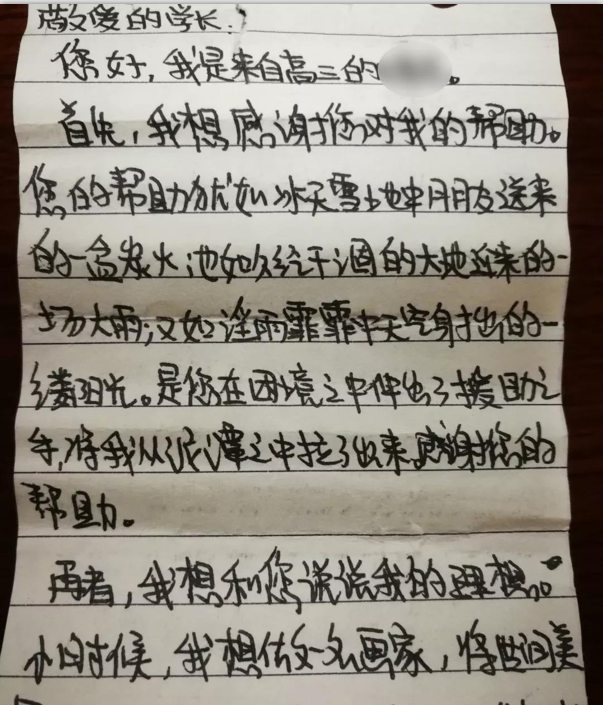 敬爱的学长:
您好,我是来自高三的
首先,我想感谢您对我的帮助。
您的帮助就如冰天雪地中朋友送来
的一盆炭火;也如久经干涸的大地迎来的一
场大雨;又如淫雨霏霏中天空射出的一
缕阳光。是您在困境之中伸出了援助之
手,将我从泥潭之中拉了出来。感谢您的
帮助。
再者,我想和您说说我的理想。
小时候,我想做一名画家,将世间美